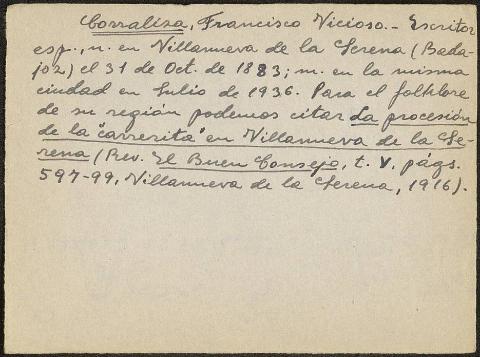 Corraliza, Francisco Vicioso.- Escritor
esp., n. en Villanueva de la Serena (Bada-
joz) el 31 de Oct. de 1883; m. en la misma
ciudad en Julio de 1936. Para el folklore
de su región podemos citar La procesión
de la "carrerita" en Villanueva de la Se-
rena (Rev. El Buen Consejo, t. V, págs.
597-99, Villanueva de la Serena, 1916).